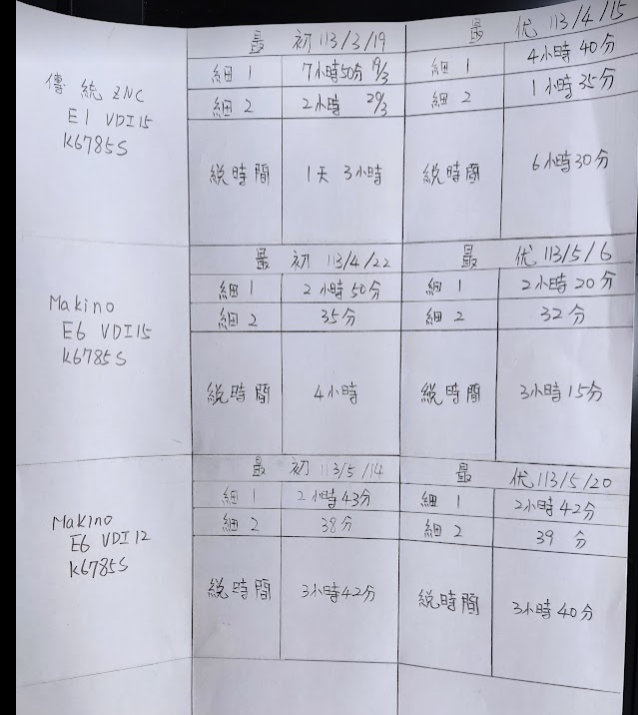 最 初 113/3/19
最 优 113/4/15
傳 統 ZNC
E1 VDI15
K6785S
細 1
7小時50分 19/3
細 1
4小時 40分
細 2
2小時 20/3
細 2
1小時35分
総時間
1天 3小時
総時間
6小時30分
最 初 113/4/22
最 优 113/5/6
Makino
E6 VDI15
K6785S
細 1
2小時50分
細 1
2小時20分
細 2
35分
細 2
32分
総時間
4小時
総時間
3小時15分
最 初 113/5/14
最 优 113/5/20
Makino
E6 VDI12
K6785S
細 1
2小時43分
細 1
2小時42分
細 2
38分
細 2
39 分
総時間
3小時42分
総時間
3小時40分